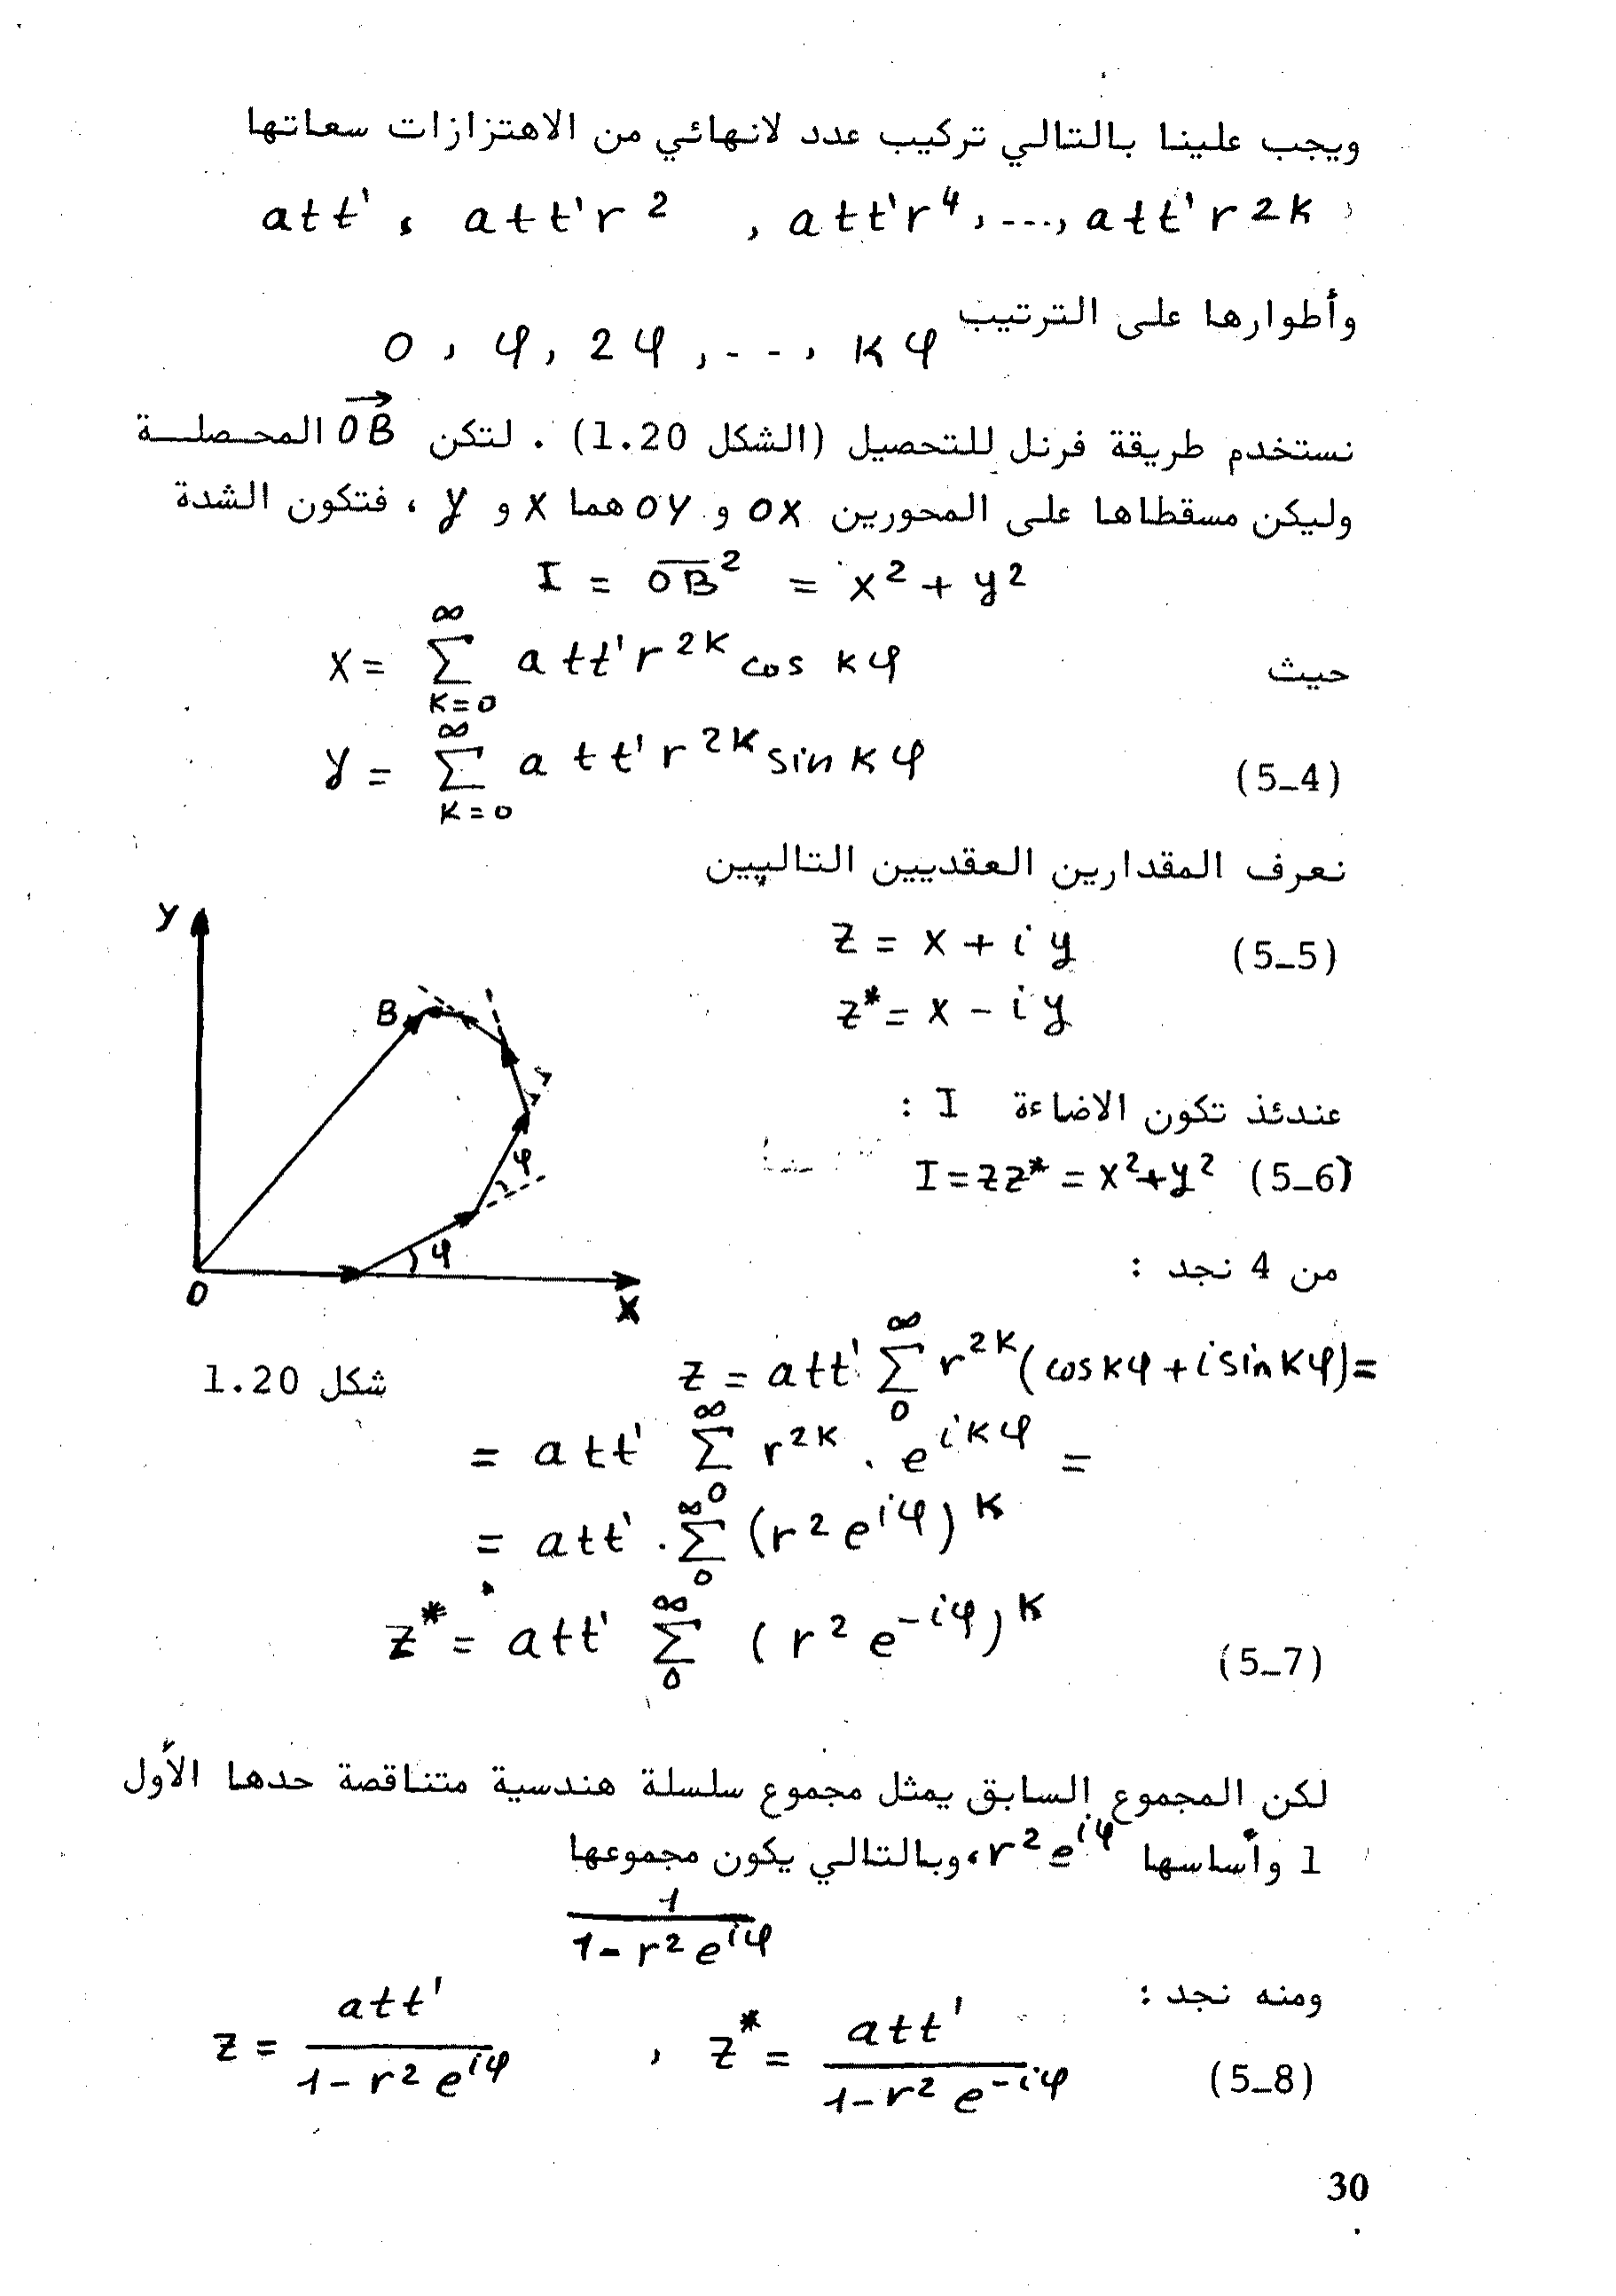 ويجب علينا بالتالي تركيب عدد لانهائي من الاهتزازات سعاتها
att' ، att'r² , att'r⁴ , ..., att'r2k ،
وأطوارها على الترتيب
0 ، φ, 2φ , - - , Kφ
نستخدم طريقة فرنل للتحصيل (الشكل 1.20) . لتكن \overrightarrow{OB} المحصلــة
وليكن مسقطاها على المحورين OX و OY هما X و Y ، فتكون الشدة
I = \overline{OB}² = x² + y²
حيث X = \sum_{K=0}^{∞} a tt' r^{2K} cos Kφ
Y = \sum_{K=0}^{∞} a tt' r^{2K} sin Kφ (5_4)
نعرف المقدارين العقديين التاليين
Z = X + iy (5_5)
Z* = X - iy
عندئذ تكون الاضاءة I :
I = ZZ* = X² + y² (5_6)
من 4 نجد :
Y
B
φ
φ
O
X
شكل 1.20
Z = att' \sum_{0}^{∞} r^{2K} (cos Kφ + i sin Kφ) =
= att' \sum_{0}^{∞} r^{2K} . e^{iKφ} =
= att' . \sum_{0}^{∞} (r² e^{iφ})^K
Z* = att' \sum_{0}^{∞} (r² e^{-iφ})^K (5_7)
لكن المجموع السابق يمثل مجموع سلسلة هندسية متناقصة حدها الأول
1 وأساسها r² e^{iφ} ،وبالتالي يكون مجموعها
\frac{1}{1 - r² e^{iφ}}
ومنه نجد :
Z = \frac{att'}{1 - r² e^{iφ}} , Z* = \frac{att'}{1 - r² e^{-iφ}} (5_8)
30